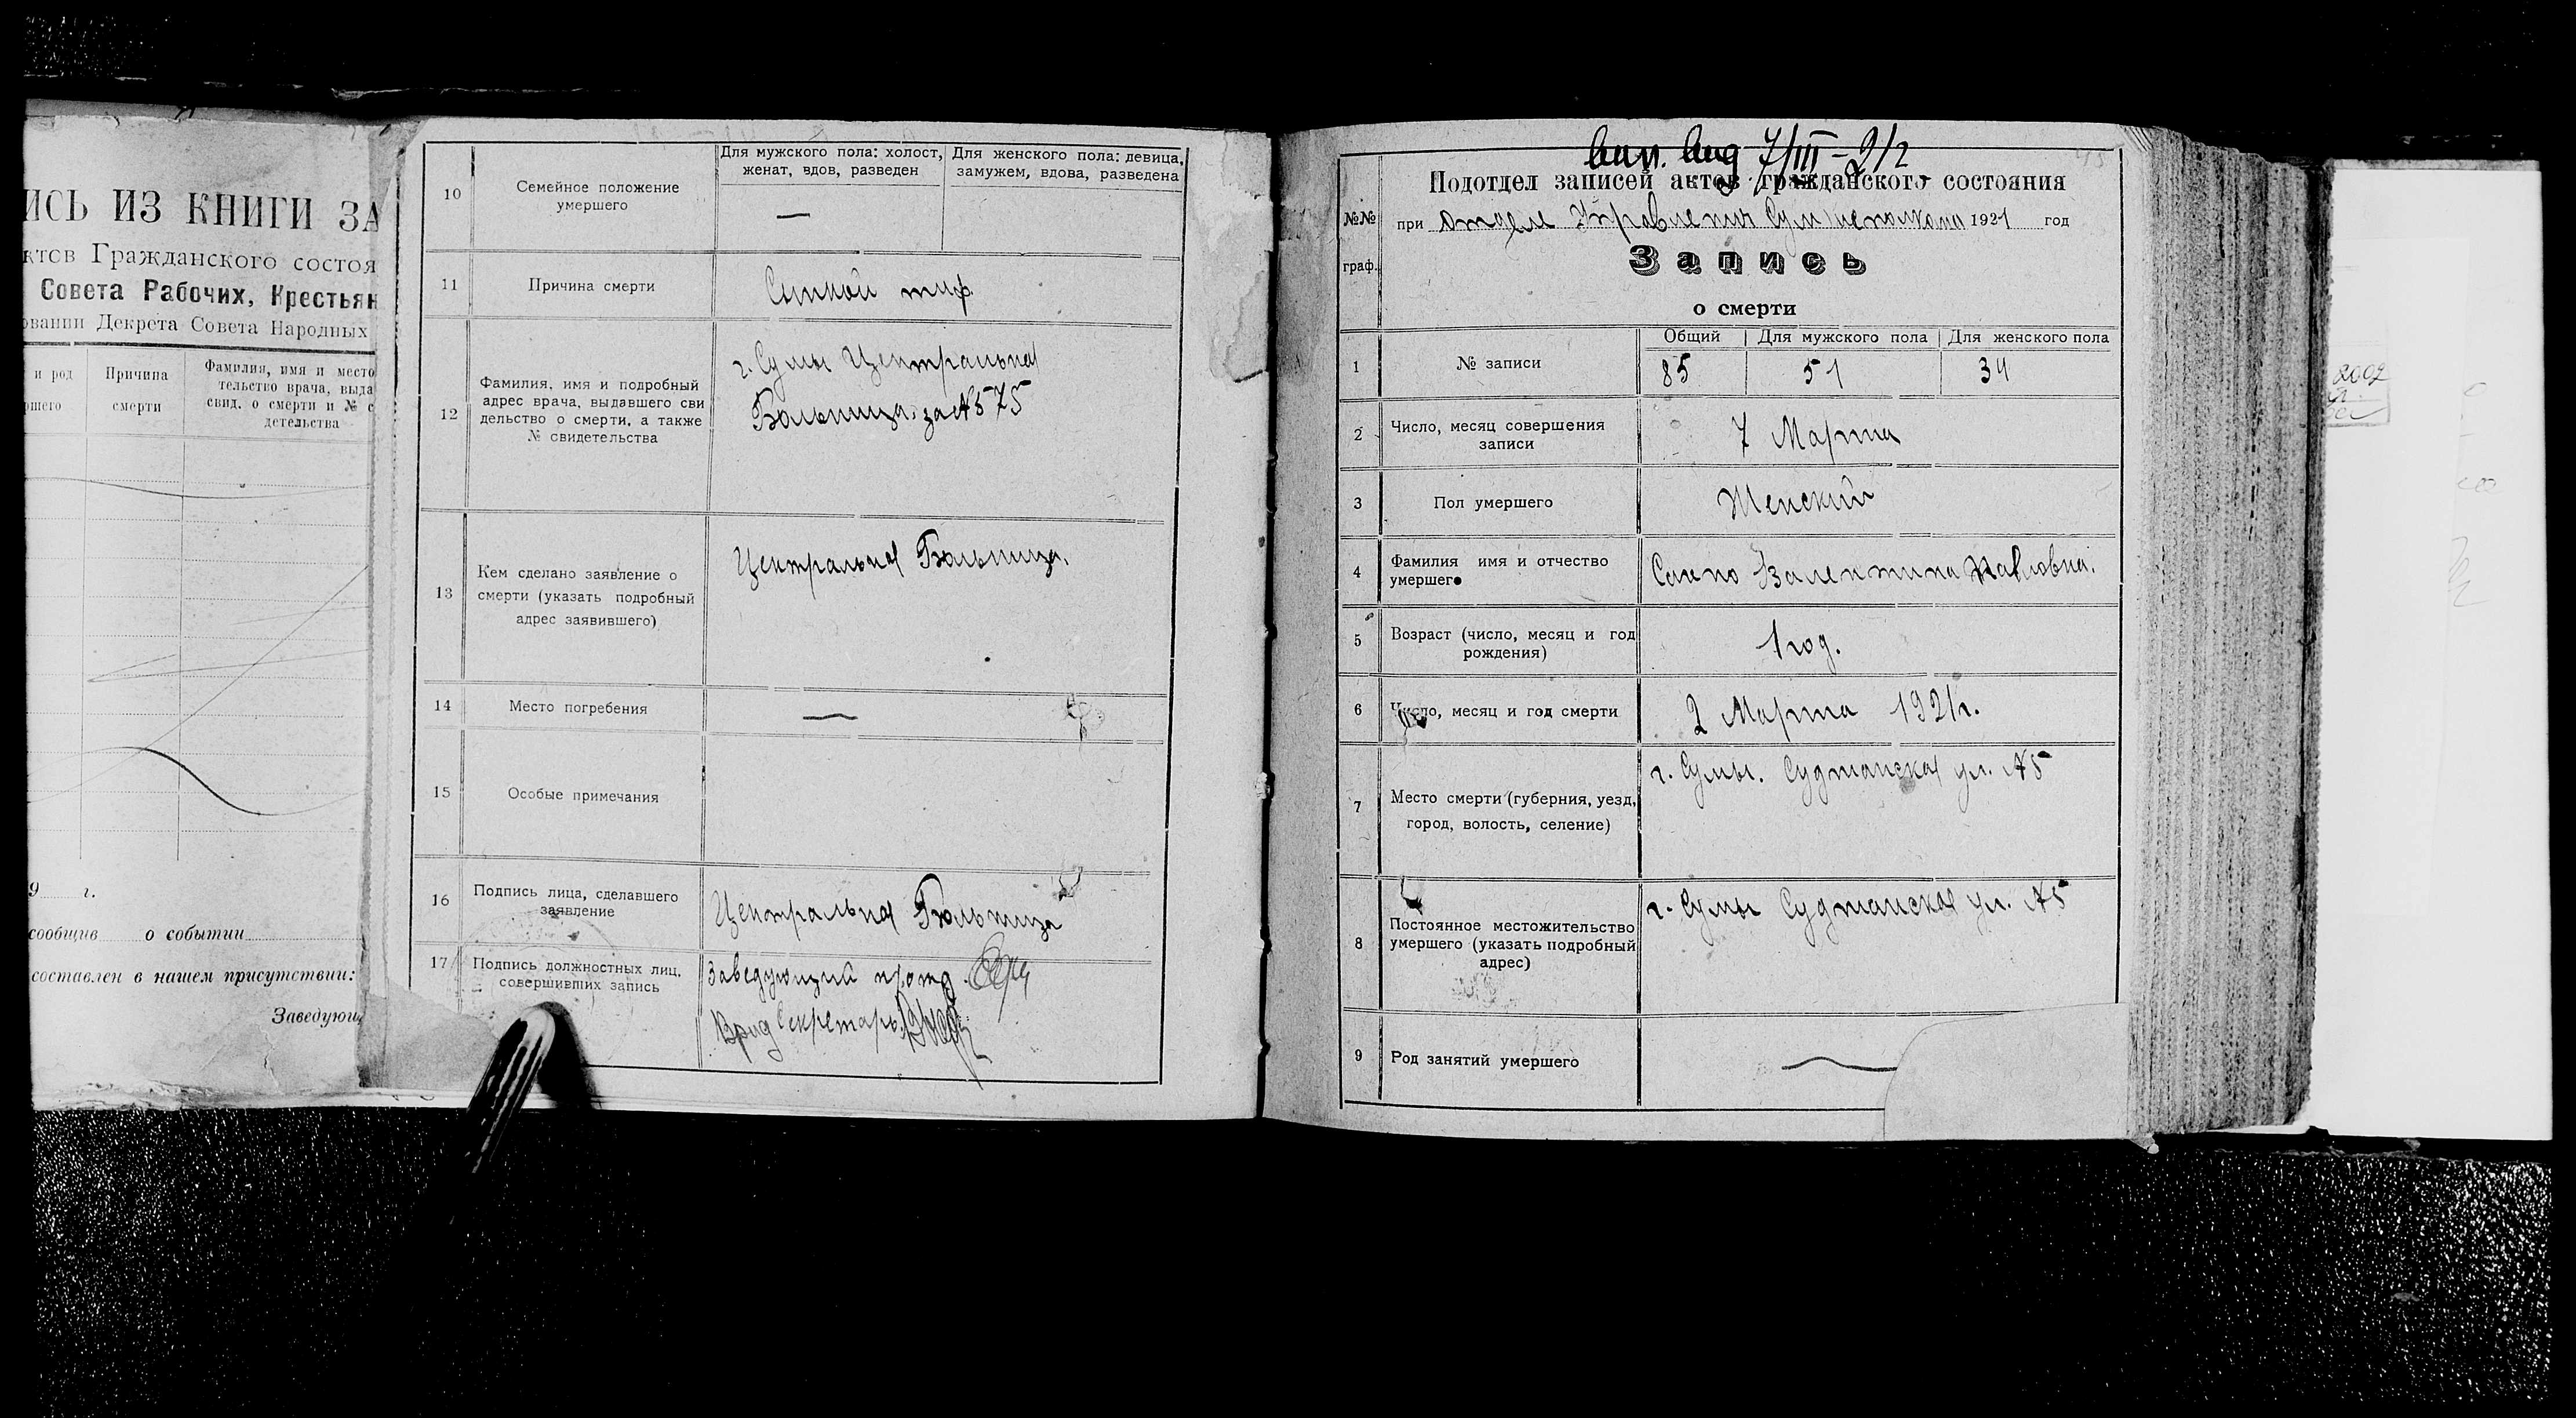 ИСЬ ИЗ КНИГИ ЗА
ктов Гражданского состоя
Совета Рабочих, Крестьян
овании Декрета Совета Народных
и род
ршего
Причина
смерти
Фамилия, имя и место
тельство врача, выда
свид. о смерти и № с
детельства
9 г.
сообщив о событии
составлен в нашем присутствии:
Заведующ
10
Семейное положение
умершего
Для мужского пола: холост,
женат, вдов, разведен
Для женского пола: девица,
замужем, вдова, разведена
—
11
Причина смерти
Сыпной тиф
12
Фамилия, имя и подробный
адрес врача, выдавшего сви
дельство о смерти, а также
№ свидетельства
г. Сумы Центральная
Больница за № 575
13
Кем сделано заявление о
смерти (указать подробный
адрес заявившего)
Центральная Больница.
14
Место погребения
—
15
Особые примечания
16
Подпись лица, сделавшего
заявление
Центральная Больница
17
Подпись должностных лиц,
совершивших запись
Заведующий п/отд.
Врид Секретарь
7/III – 2/2
Подотдел записей актов гражданского состояния
№№
граф.
при отделе Управления Сумисполкома 1921 год
Запись
о смерти
1
№ записи
Общий
Для мужского пола
Для женского пола
85
51
34
2
Число, месяц совершения
записи
7 Марта
3
Пол умершего
Женский
4
Фамилия имя и отчество
умершего
Валентина Павловна.
5
Возраст (число, месяц и год
рождения)
1 год.
6
Число, месяц и год смерти
2 Марта 1921 г.
7
Место смерти (губерния, уезд,
город, волость, селение)
г. Сумы. Суджанская ул. № 5
8
Постоянное местожительство
умершего (указать подробный
адрес)
г. Сумы Суджанская ул. № 5
9
Род занятий умершего
—
2002